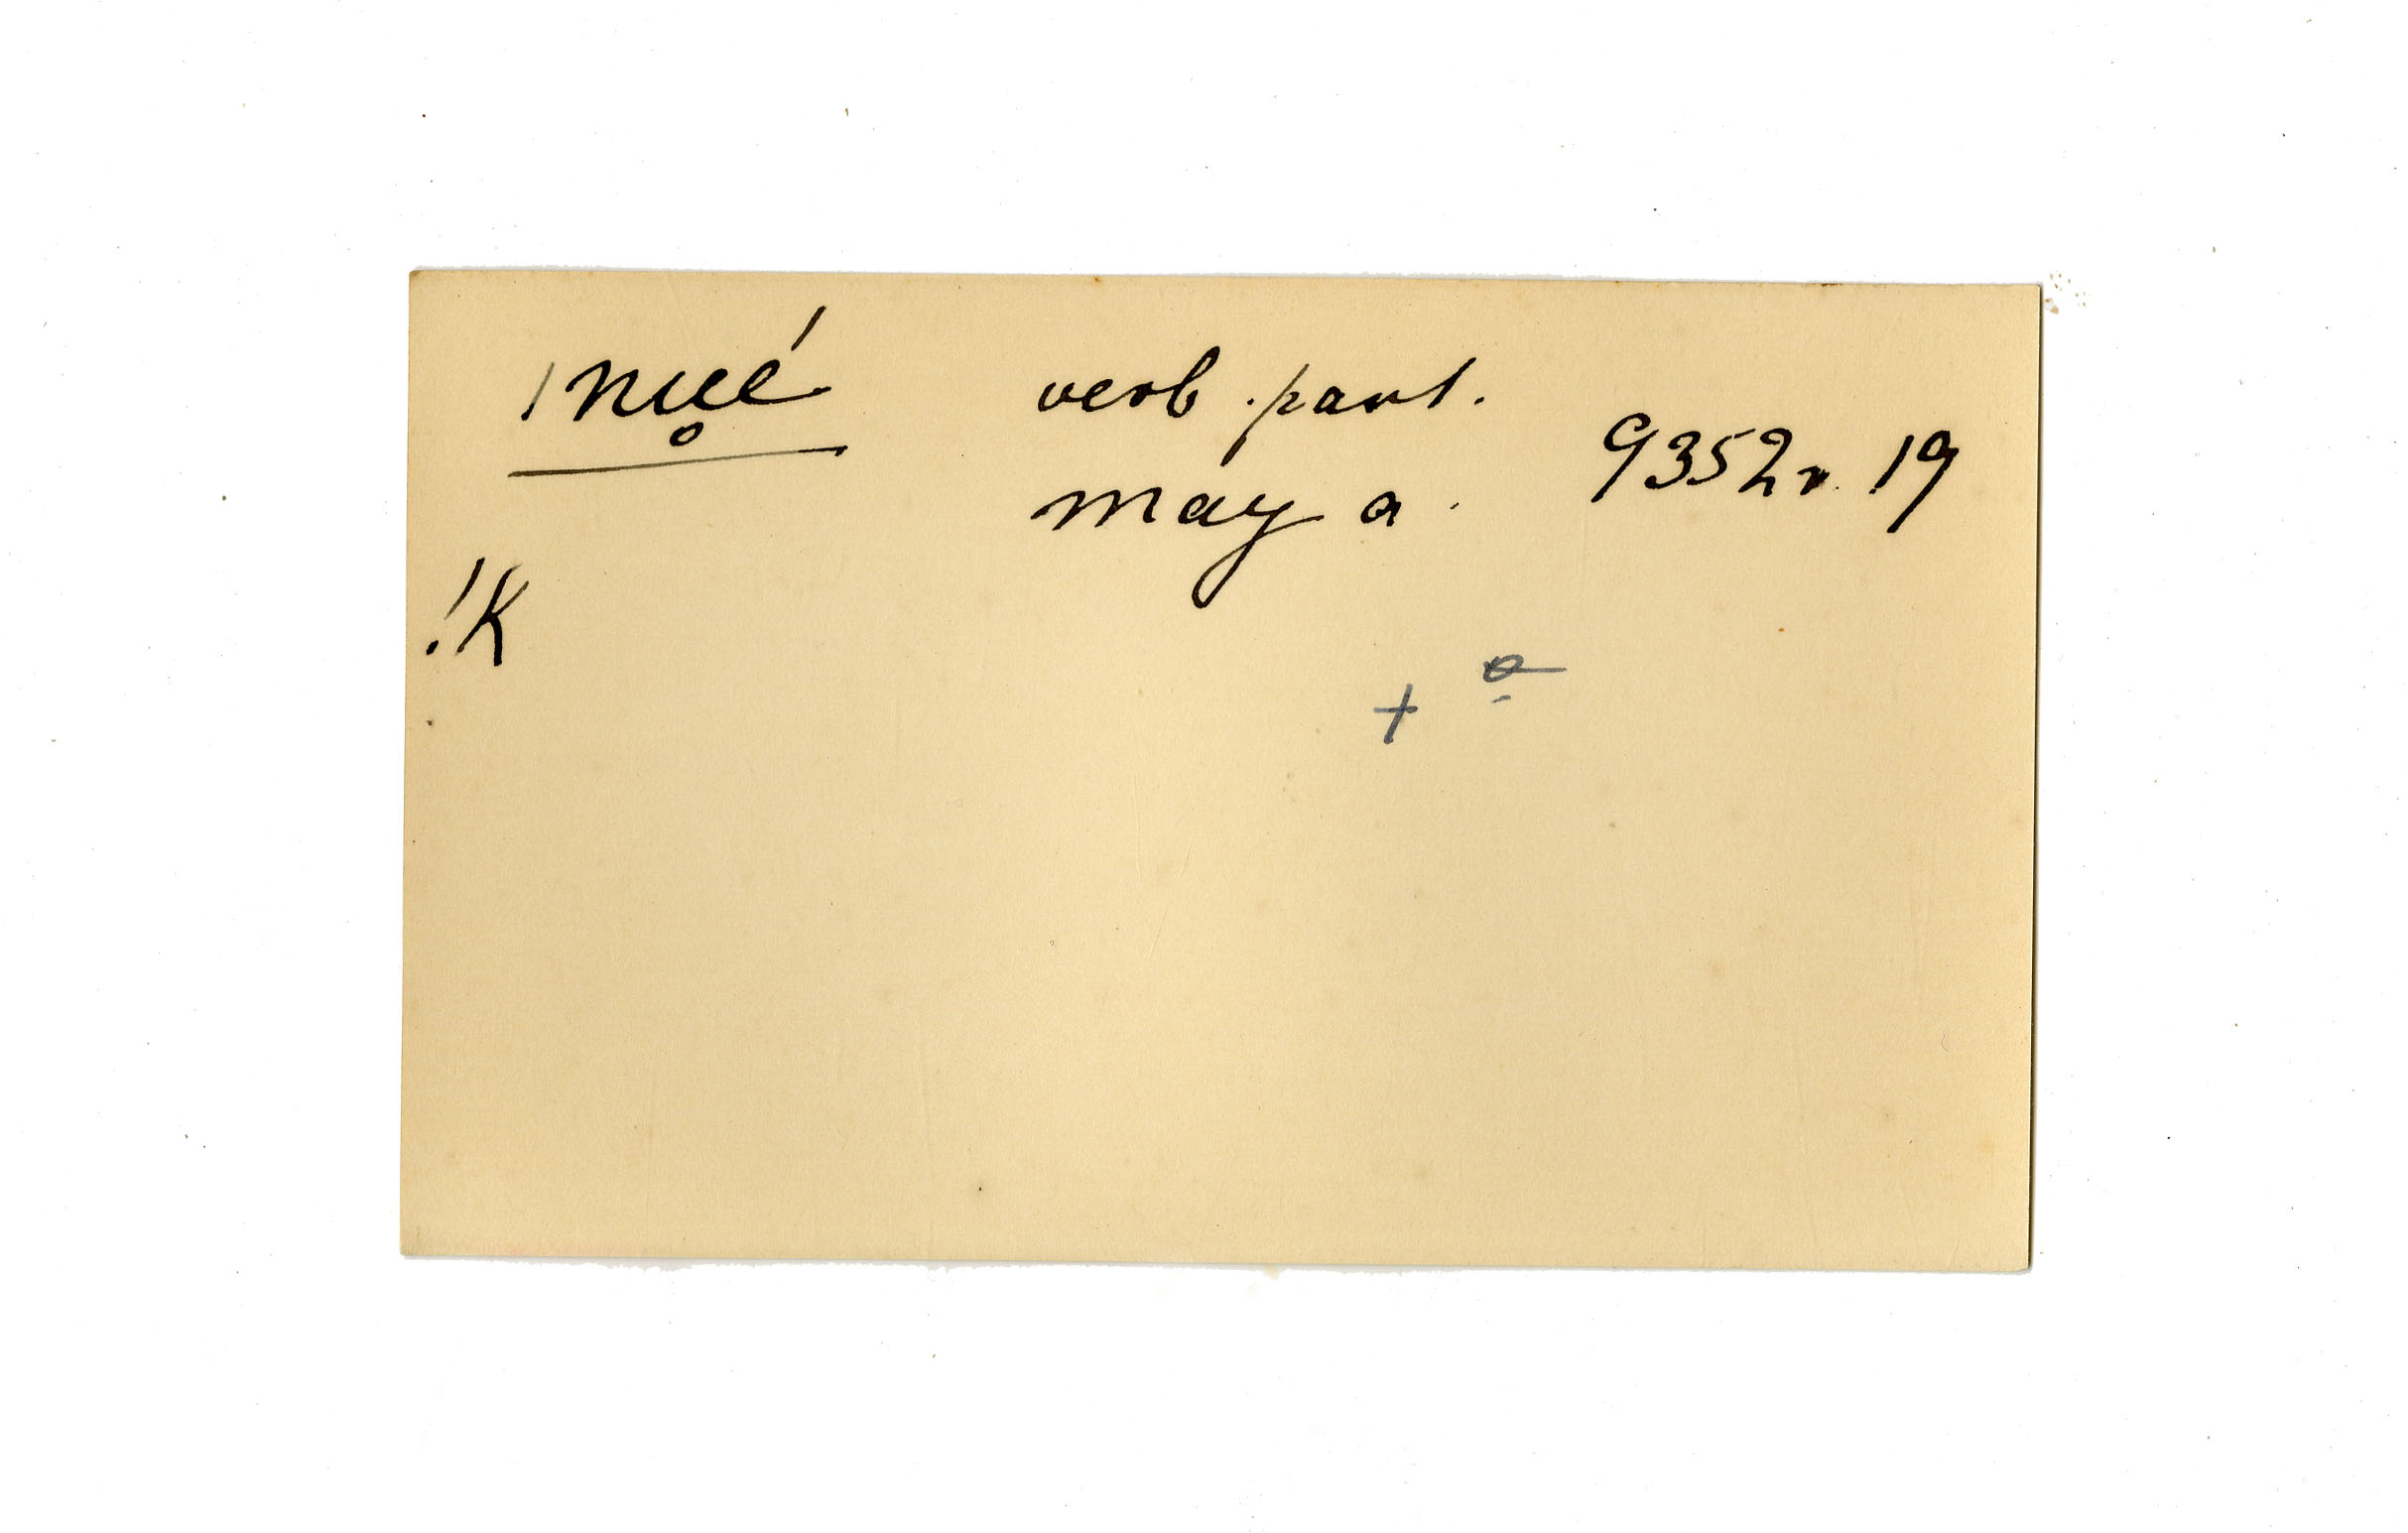 /nu̥é verb. part.
may a. 9352v. 19
!K
+ a